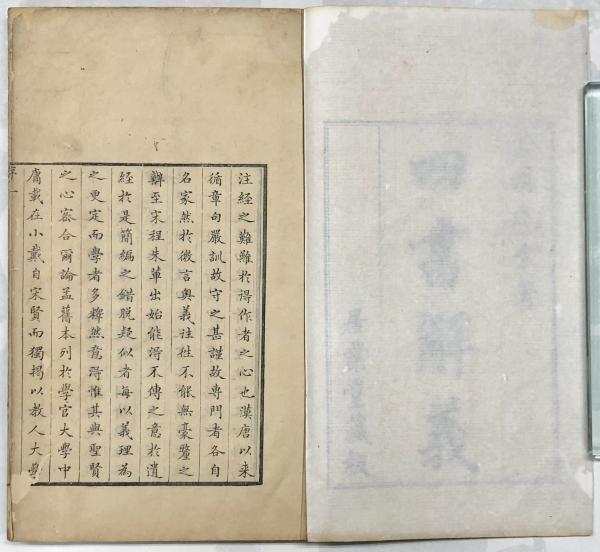 注經之難難於得作者之心也漢唐以來
循章句嚴訓故守之甚謹故專門者各自
名家然於微言奧義往往不能無豪釐之
辨至宋程朱輩出始能得不傳之意於遺
經於是簡編之錯脫疑似者每以義理為
之更定而學者多釋然意得惟其與聖賢
之心窋合爾論孟舊本列於學官大學中
庸載在小戴自宋賢而獨揭以教人大學
序一